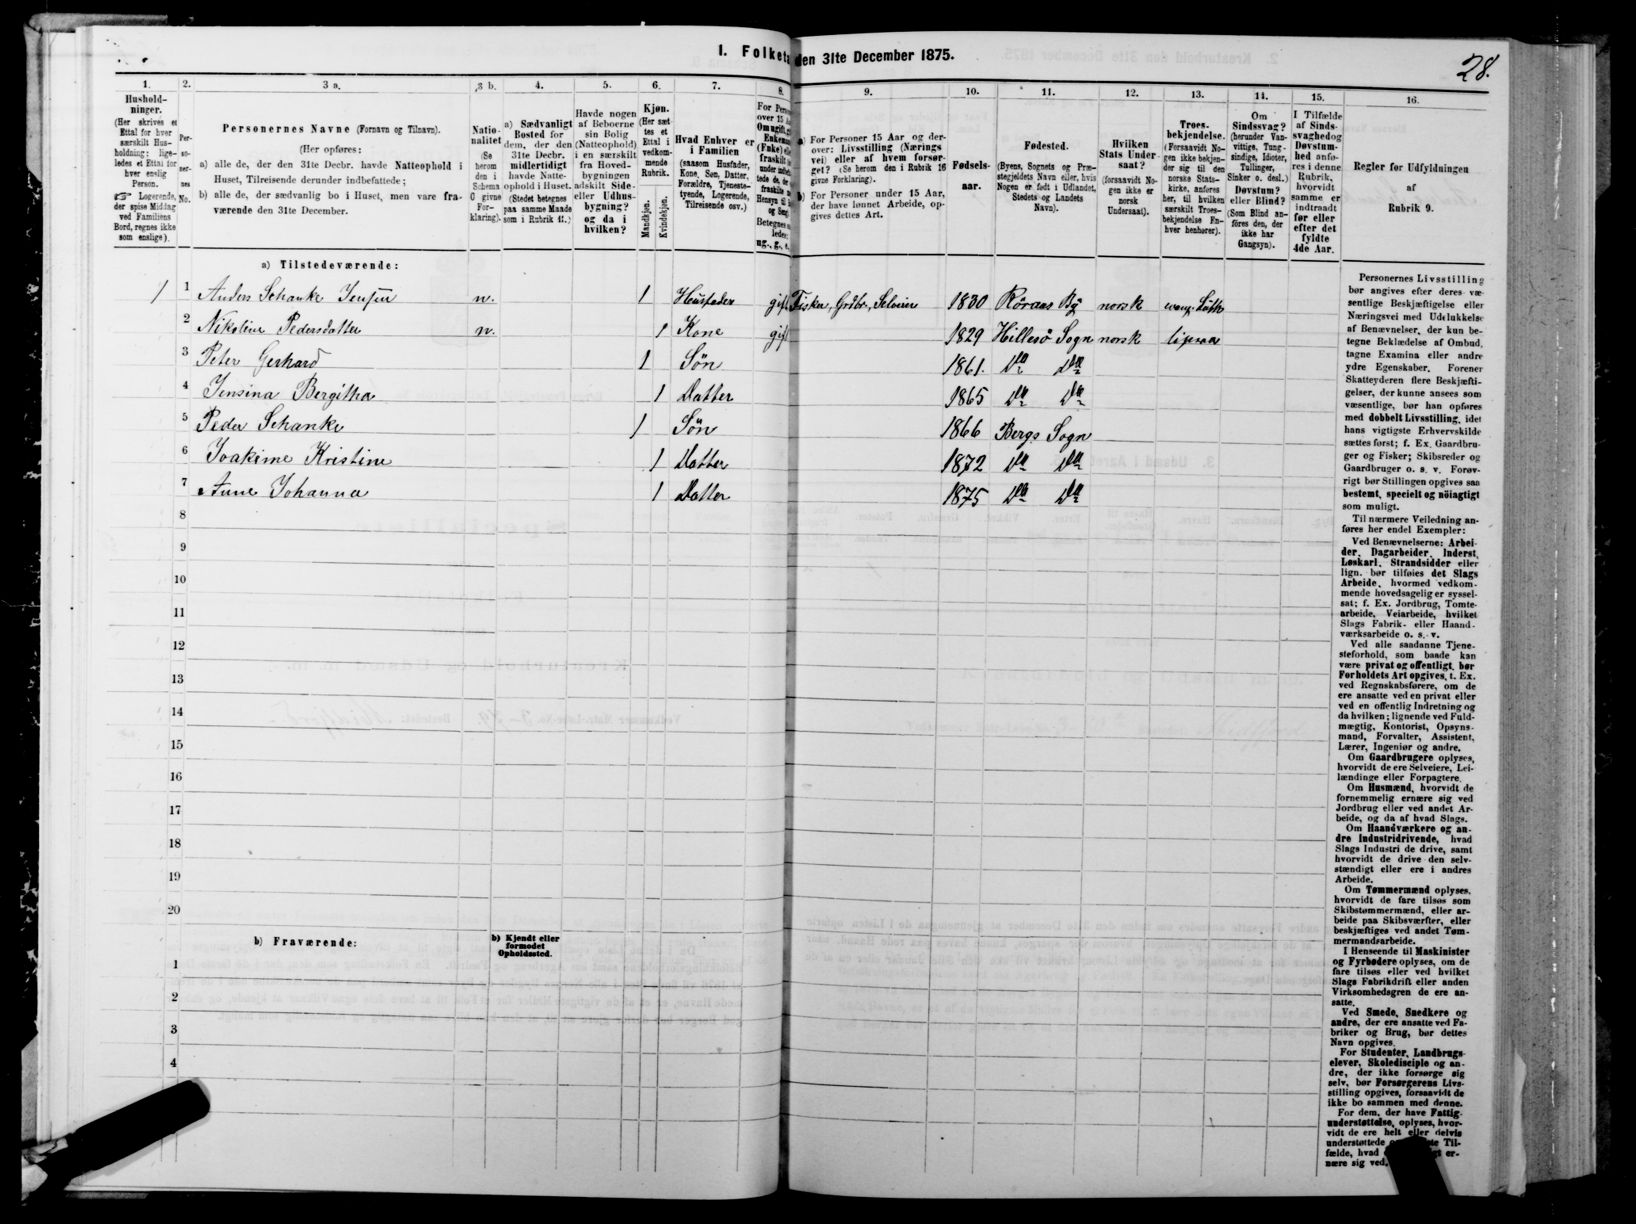 28.
I. Folketæ
den 31te December 1875.
1. 2. 3 a. 3 b. 4. 5. 6. 7. 8. 9. 10. 11. 12. 13. 14. 15. 16.
Hushold-
ninger.
(Her skrives et
Ettal for hver
særskilt Hus-
holdning; lige-
ledes et Ettal for
hver enslig
Person.
☞ Logerende,
der spise Middag
ved Familiens
Bord, regnes ikke
som enslige).
Per-
so-
ner-
nes
No.
Personernes Navne (Fornavn og Tilnavn).
(Her opføres:
a) alle de, der den 31te Decbr. havde Natteophold i
Huset, Tilreisende derunder indbefattede;
b) alle de, der sædvanlig bo i Huset, men vare fra-
værende den 31te December.
Natio-
nalitet
(Se
herom
den i
Schema
O givne
For-
klaring).
a) Sædvanligt
Bosted for
dem, der den
31te Decbr.
midlertidigt
havde Natte-
ophold i Huset.
(Stedet betegnes
paa samme Maade
som i Rubrik 11.)
Havde nogen
af Beboerne
sin Bolig
(Natteophold)
i en særskilt
fra Hoved-
bygningen
adskilt Side-
eller Udhus-
bygning?
og da i
hvilken?
Kjøn.
(Her sæt-
tes et
Ettal i
vedkom-
mende
Rubrik.
Mandkjøn.
Kvindekjøn.
Hvad Enhver er
i Familien
(saasom Husfader,
Kone, Søn, Datter,
Forældre, Tjeneste-
tyende, Logerende,
Tilreisende osv.)
For Perso
over 15 A
Om ugift, g
Enkema
(Enke) ell
fraskilt
Hensyn ti
og Seng
Betegnes
ledes:
ug., g., e.
a) For Personer 15 Aar og der-
over: Livsstilling (Nærings
vei) eller af hvem forsør-
get? (Se herom den i Rubrik 16
givne Forklaring).
b) For Personer under 15 Aar,
der have lønnet Arbeide, op-
gives dettes Art.
Fødsels-
aar.
Fødested.
(Byens, Sognets og Præ-
stegjeldets Navn eller, hvis
Nogen er født i Udlandet,
Stedets og Landets
Navn).
Hvilken
Stats Under-
saat?
(forsaavidt No-
gen ikke er
norsk
Undersaat).
Troes-
bekjendelse.
(Forsaavidt No-
gen ikke bekjen-
der sig til den
norske Stats-
kirke, anføres
her, til hvilken
særskilt Troes-
bekjendelse En-
hver henhører).
Om
Sindssvag?
(herunder Van-
vittige, Tung-
sindige, Idioter,
Tullinger,
Sinker o. desl.)
Døvstum?
eller Blind?
(Som Blind an-
føres den, der
ikke har
Gangsyn).
I Tilfælde
af Sinds-
svaghed og
Døvstum-
hed anfø-
res i denne
Rubrik,
hvorvidt
samme er
indtraadt
før eller
efter det
fyldte
4de Aar.
Regler før Udfyldningen
af
Rubrik 9.
a) Tilstedeværende:
1 1 Anders Schanke Jensen n. 1 Husfader gift Fisker, Grdbr., Seleier 1830 Röraas By norsk evang. Luth
2 Nikoline Pedersdatter n. 1 Kone gift 1829 Hillesö Sogn norsk
3 Peter Gerhard 1 Søn 1861. Do Do
4 Jensina Bergitha 1 Datter 1865 Do Do
5 Peder Schanke 1 Søn 1866 Bergs Sogn
6 Joakime Kristine 1 Datter 1872 Do Do
7 Anne Johanna 1 Datter 1875 Do Do
8
9
10
11
12
13
14
15
16
17
18
19
20
b) Fraværende:
b) Kjendt eller
formodet
Opholdssted.
1
2
3
4
Personernes Livsstilling
bør angives efter deres væ-
sentlige Beskjæftigelse eller
Næringsvei med Udelukkelse
af Benævnelser, der kun be-
tegne Beklædelse af Ombud,
tagne Examina eller andre
ydre Egenskaber. Forener
Skatteyderen flere Beskjæfti-
gelser, der kunne ansees som
væsentlige, bør han opføres
med dobbelt Livsstilling, idet
hans vigtigste Erhvervskilde
sættes først; f. Ex. Gaardbru-
ger og Fisker; Skibsreder og
Gaardbruger o. s. v. Forøv-
rigt bør Stillingen opgives saa
bestemt, specielt og nöiagtigt
som muligt.
Til nærmere Veiledning an-
føres her endel Exempler:
Ved Benævnelserne: Arbei-
der, Dagarbeider, Inderst,
Løskarl, Strandsidder eller
lign. bør tilføies det Slags
Arbeide, hvormed vedkom-
mende hovedsagelig er syssel-
sat; f. Ex. Jordbrug, Tomte-
arbeide, Veiarbeide, hvilket
Slags Fabrik- eller Haand-
værksarbeide o. s. v.
Ved alle saadanne Tjene-
steforhold, som baade kan
være privat og offentligt, bør
Forholdets Art opgives, t. Ex.
ved Regnskabsførere, om de
ere ansatte ved en privat eller
ved en offentlig Indretning og
da hvilken; lignende ved Fuld-
mægtig, Kontorist, Opsyns-
mand, Forvalter, Assistent,
Lærer, Ingeniør og andre.
Om Gaardbrugere oplyses,
hvorvidt de ere Selveiere, Lei-
lændinge eller Forpagtere.
Om Husmænd, hvorvidt de
fornemmelig ernære sig ved
Jordbrug eller ved andet Ar-
beide, og da af hvad Slags.
Om Haandværkere og an-
dre Industridrivende, hvad
Slags Industri de drive, samt
hvorvidt de drive den selv-
stændigt eller ere i andres
Arbeide.
Om Tømmermænd oplyses,
hvorvidt de fare tilsøs som
Skibstømmermænd, eller ar-
beide paa Skibsværfter, eller
beskjæftiges ved andet Tøm-
mermandsarbeide.
I Henseende til Maskinister
og Fyrbødere oplyses, om de
fare tilsøs eller ved hvilket
Slags Fabrikdrift eller anden
Virksomhedsgren de ere an-
satte.
Ved Smede, Snedkere og
andre, der ere ansatte ved Fa-
briker og Brug, bør dettes
Navn opgives.
For Studenter, Landbrugs-
elever, Skoledisciple og an-
dre, der ikke forsørge sig
selv, bør Forsørgerens Livs-
stilling opgives, forsaavidt de
ikke bo sammen med denne.
For dem, der have Fattig-
understøttelse, oplyses, hvor-
vidt de ere helt eller delvis
understøttede Til-
fælde, hvad er-
nære sig ved.